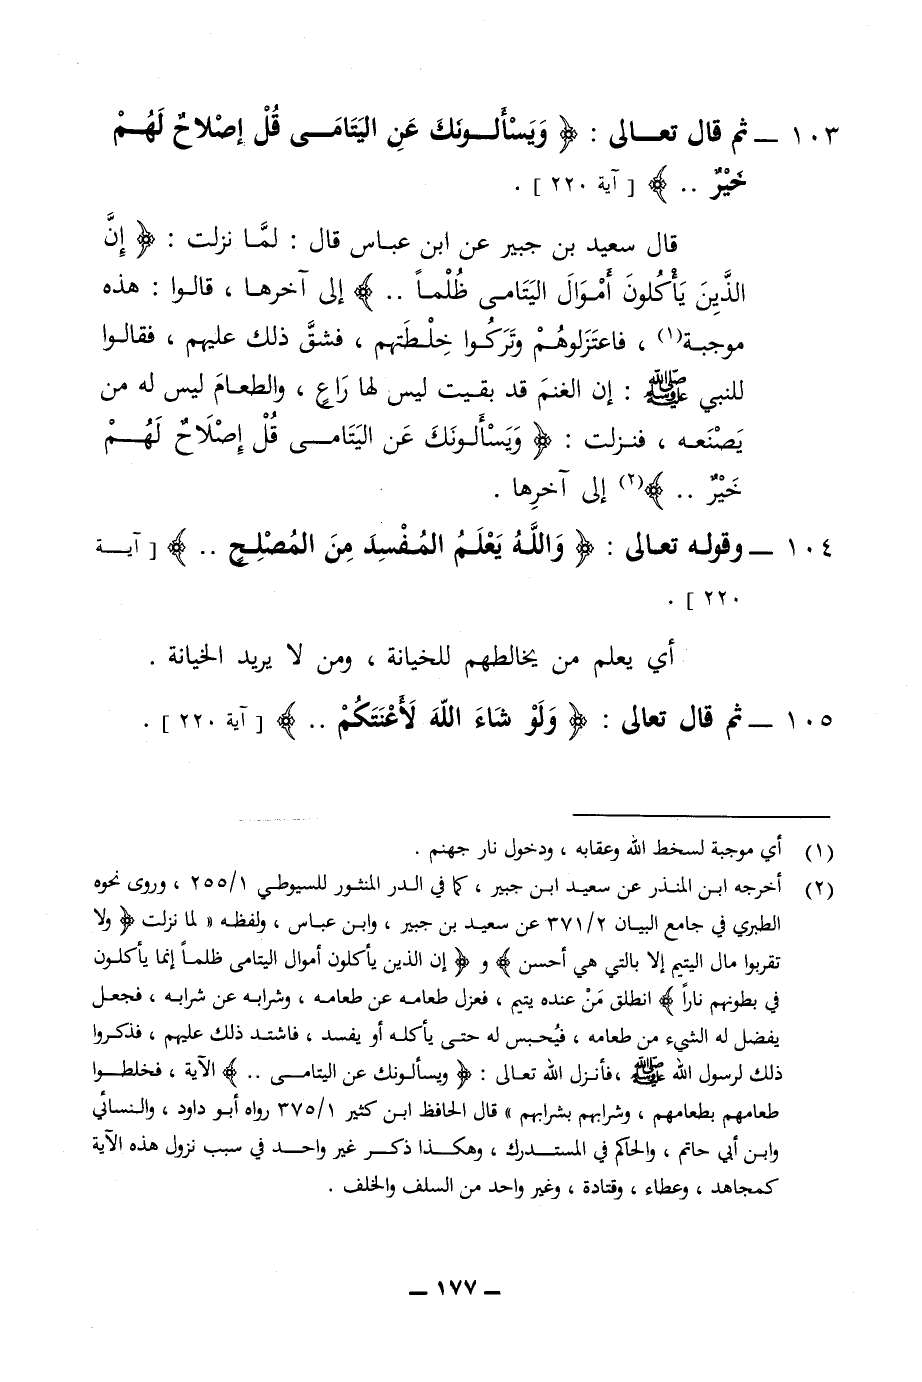 ١٠٣ ـ ثم قال تعـالى : ﴿ وَيَسْأَلـونَكَ عَنِ اليَتَامَـى قُلْ إِصْلاحٌ لَهُـمْ
خَيْرٌ .. ﴾ [ آية ٢٢٠ ] .
قال سعيد بن جبير عن ابن عباس قال : لمَّا نزلت : ﴿ إِنَّ
الذَّينَ يَأْكُلونَ أَمْوَالَ اليَتَامى ظُلْماً .. ﴾ إلى آخرها ، قالوا : هذه
موجبة(١) ، فاعتَزلوهُمْ وتَركُوا خِلْطَتهم ، فشقَّ ذلك عليهم ، فقالوا
للنبي ﷺ : إن الغنمَ قد بقيت ليس لها رَاعٍ ، والطعامَ ليس له من
يَصْنَعه ، فنزلت : ﴿ وَيَسْأَلونَكَ عَن اليَتَامـى قُلْ إِصْلَاحٌ لَهُـمْ
خَيْرٌ .. ﴾(٢) إلى آخرِها .
١٠٤ ـ وقوله تعالى : ﴿ وَاللَّهُ يَعْلَمُ المُفْسِدَ مِنَ المُصْلِحِ .. ﴾ [ آيـة
٢٢٠ ] .
أي يعلم من يخالطهم للخيانة ، ومن لا يريد الخيانة .
١٠٥ ـ ثم قال تعالى : ﴿ وَلَوْ شَاءَ اللَّهَ لَأَعْنَتَكُمْ .. ﴾ [ آية ٢٢٠ ] .
(١) أي موجبة لسخط الله وعقابه ، ودخول نار جهنم .
(٢) أخرجه ابن المنذر عن سعيد ابن جبير ، كما في الدر المنثور للسيوطي ٢٥٥/١ ، وروى نحوه
الطبري في جامع البيان ٣٧١/٢ عن سعيد بن جبير ، وابن عباس ، ولفظه « لما نزلت ﴿ ولا
تقربوا مال اليتيم إلا بالتي هي أحسن ﴾ و ﴿ إن الذين يأكلون أموال اليتامى ظلماً إنما يأكلون
في بطونهم ناراً ﴾ انطلق مَنْ عنده يتيم ، فعزل طعامه عن طعامه ، وشرابه عن شرابه ، فجعل
يفضل له الشيء من طعامه ، فيُحبس له حتى يأكله أو يفسد ، فاشتد ذلك عليهم ، فذكروا
ذلك لرسول الله ﷺ ،فأنزل الله تعالى : ﴿ ويسألونك عن اليتامى .. ﴾ الآية ، فخلطوا
طعامهم بطعامهم ، وشرابهم بشرابهم » قال الحافظ ابن كثير ٣٧٥/١ رواه أبو داود ، والنسائي
وابن أبي حاتم ، والحاكم في المستدرك ، وهكذا ذكر غير واحد في سبب نزول هذه الآية
كمجاهد ، وعطاء ، وقتادة ، وغير واحد من السلف والخلف .
ـ ١٧٧ ـ